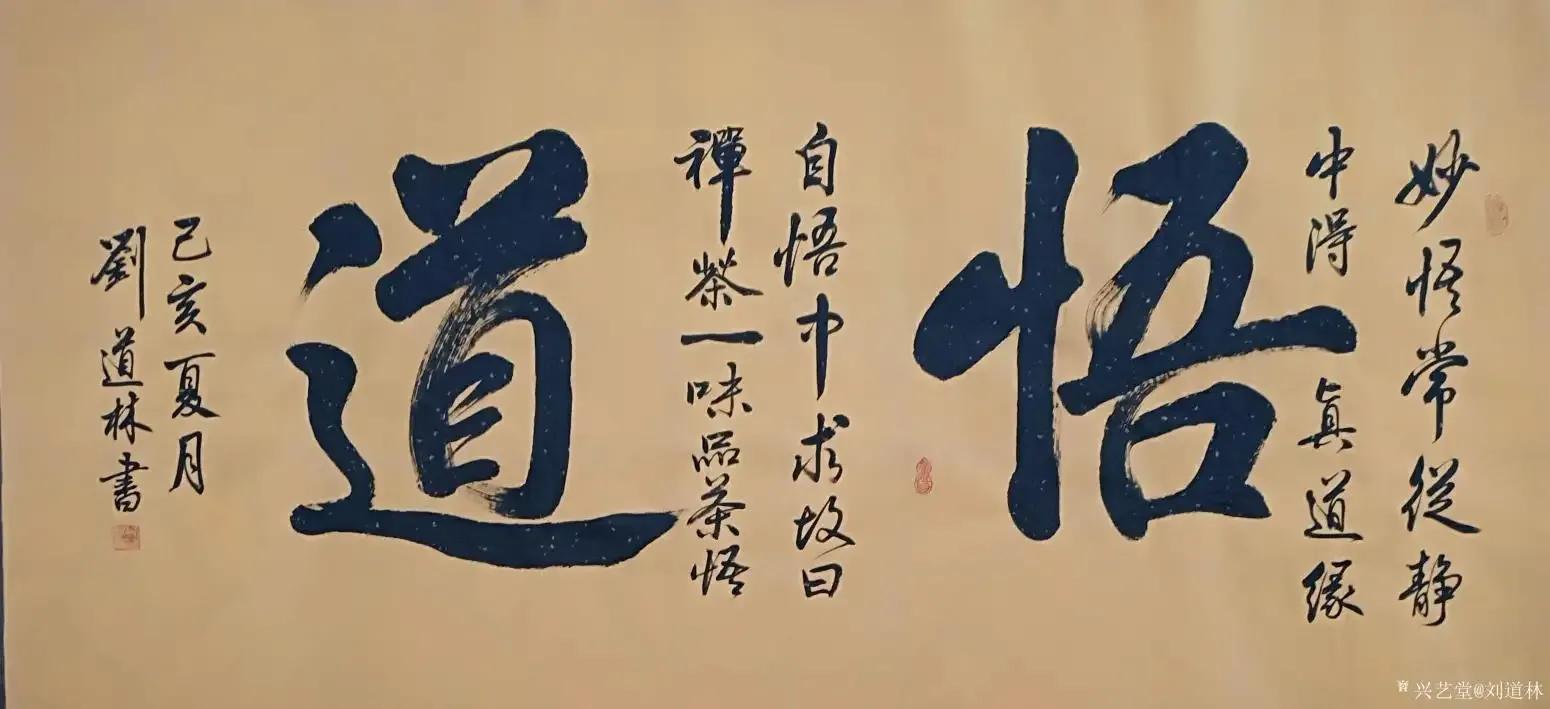 妙悟常從静
中得真道緣
悟
自悟中求故曰
禪茶一味品茶悟
道
己亥夏月
劉道林書
兴艺堂@刘道林